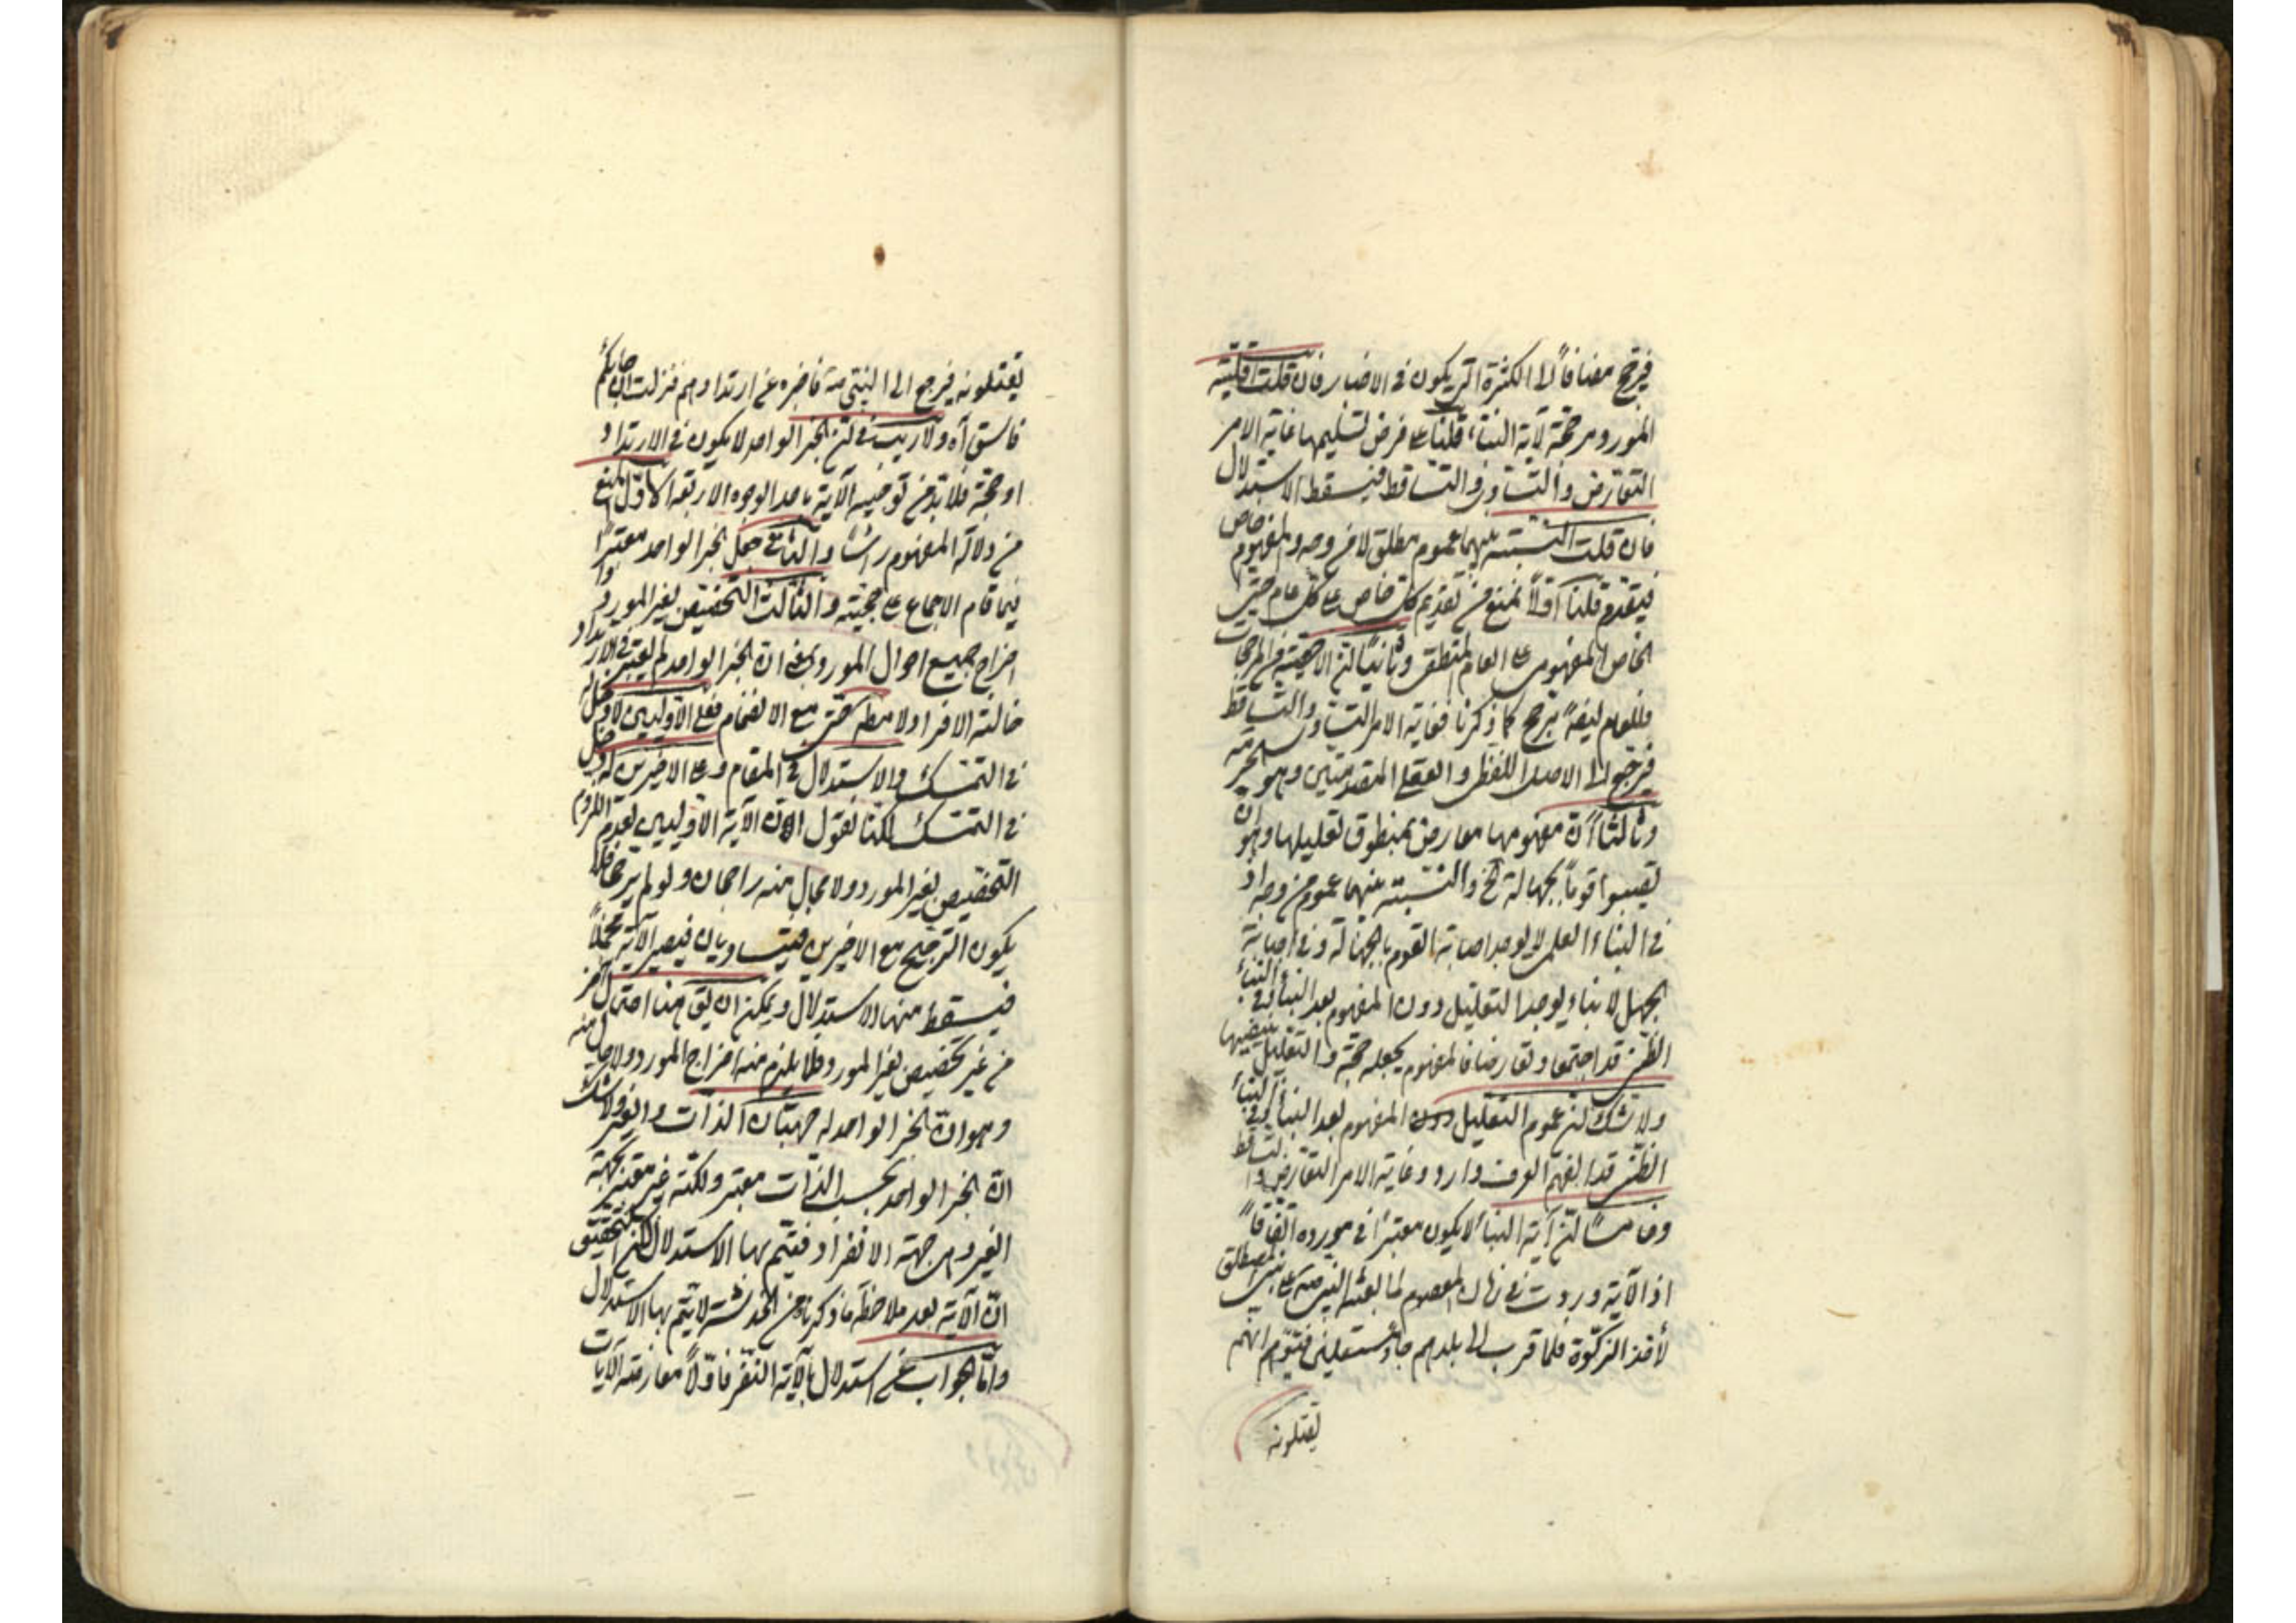 فيرجح مضافاً الى الكثرة التى يكون فى الاخبار فان قلت اقلية
المورد مرجحة لآية النبأ قلنا على فرض تسليمها غاية الامر
التعارض والتساوى والتساقط فيسقط الاستدلال
فان قلت النسبة بينهما عموم مطلق لا من وجه والمفهوم خاص
فيقدم قلنا اولاً نمنع من تقديم كل خاص على كل عام حتى
الخاص المفهومى على العام المنطقى وثانياً لئن الاخصية من المرجحات
فللعام ايضاً مرجح كما ذكرنا فغاية الامر التساوى والتساقط
فيرجع الى الاصل اللفظى والعقلى المتقدمتين وهو الحرمة
وثالثاً ان مفهومها معارض بمنطوق تعليلها وهو ان
تصيبوا قوماً بجهالة الخ والنسبة بينهما عموم من وجه اذ
فى النباء العلمى لا يوجد اصابة القوم بالجهالة وفى اصابة
الجهل لا بنباء يوجد التعليل دون المفهوم بعد النبأ وفى النبأ
الظنى قد اجتمعا وتعارضا فالمفهوم يجعله حجة والتعليل ينفيها
ولا شك لئن عموم التعليل المفهوم بعد النبأ وفى النبأ
الظنى قد الفهم العرف وارد وغاية الامر التعارض والتساقط
وخامساً لئن آية النبأ لا يكون معتبراً فى مورده اتفاقاً
اذ الآية وردت فى زمان المعصوم لما بعثه النبى ص على بنى المصطلق
لأخذ الزكوة فلما قرب الى بلدهم جاؤا مستقبلين فتوهم انهم
يقتلونه
يقتلونه فيرجع الى النبى ص فاخبره عن ارتدادهم فنزلت ان جائكم
فاسق آه ولا ريب فى لئن الخبر الواحد لا يكون فى الارتداد
او حجة فلا بد من توجيه الآية باحد الوجوه الاربعة الاول المنع
من دلالة المفهوم راسا والثانى جعل الخبر الواحد معتبراً
فيما قام الاجماع على حجيته والثالث التخصيص بغير المورد و
اخراج جميع احوال المورد بمعنى ان الخبر الواحد لم يعتبر فى الارتداد
حالة الافراد لا مطم حتى مع الانضمام فعلى الاوليين لا دخل له
فى التمسك والاستدلال فى المقام وعلى الاخيرين له دخل
فى التمسك لكنا نقول الان الآية الاوليين لعدم اللزوم
التخصيص بغير المورد ولا مجال منه راجحان ولو لم يرجحا فلا
يكون الترجيح مع الاخيرين فيتساويان فيصير الآية مجملاً
فيسقط منها الاستدلال ويمكن ان يق هنا احتمال آخر
من غير تخصيص بغير المورد فلا يلزم منه اخراج المورد ولا
وهو ان الخبر الواحد له جهتان الذات والغير ولا شك
ان الخبر الواحد بحسب الذات معتبر ولكنه غير معتبر بجهة
الغير وهى جهة الانفراد فيتم بها الاستدلال لكن التحقيق
ان الآية بعد ملاحظة ما ذكرنا من الخدشة لا يتم بها الاستدلال
واما الجواب عن استدلال بآية النفر فاولاً معارضته الآيات